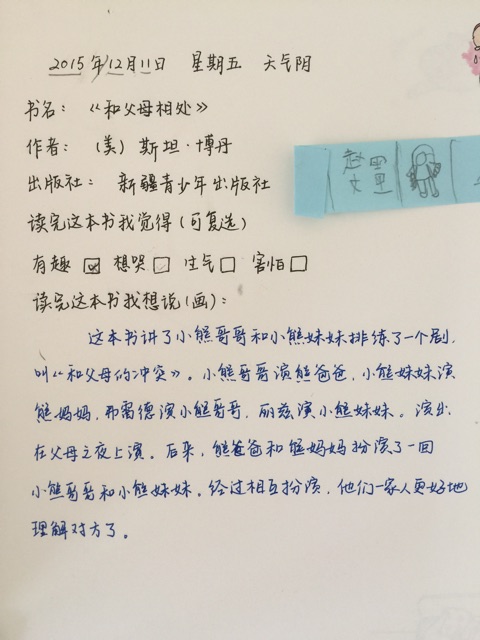 2015年12月11日 星期五 天气阴
书名：《和父母相处》
作者：（美）斯坦·博丹
出版社：新疆青少年出版社
读完这本书我觉得（可复选）
有趣☑ 想哭□ 生气□ 害怕□
读完这本书我想说（画）：
这本书讲了小熊哥哥和小熊妹妹排练了一个剧，
叫《和父母的冲突》。小熊哥哥演熊爸爸，小熊妹妹演
熊妈妈，弗雷德演小熊哥哥，丽兹演小熊妹妹。演出
在父母之夜上演。后来，熊爸爸和熊妈妈扮演了一回
小熊哥哥和小熊妹妹。经过相互扮演，他们一家人更好地
理解对方了。
赵
文里